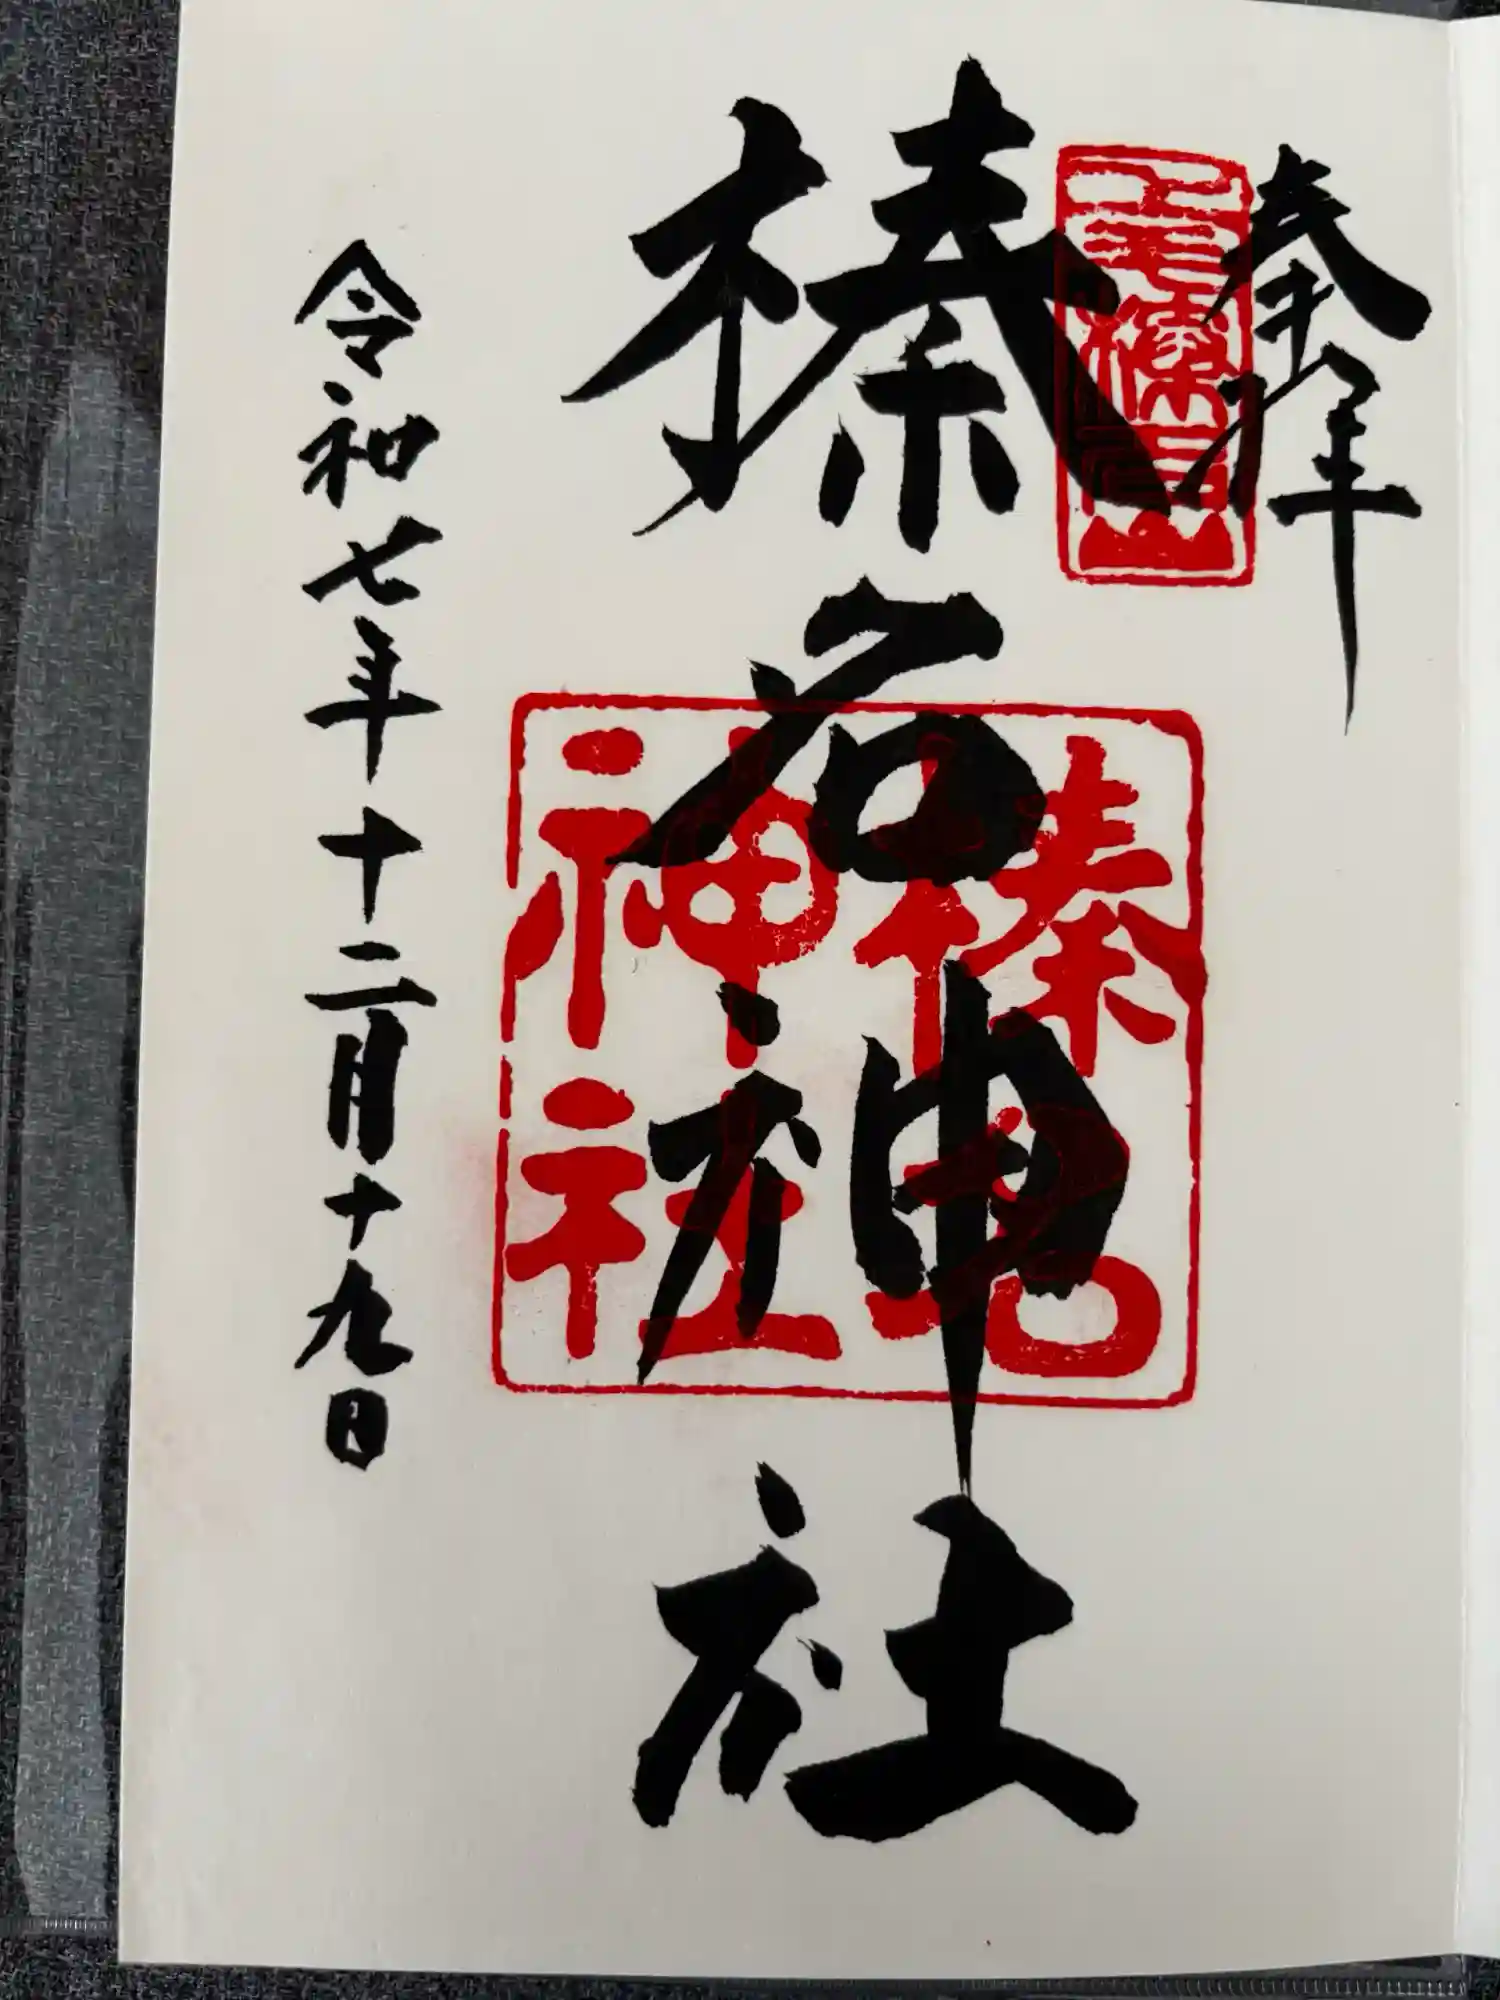 奉拝
上毛榛名山
榛名神社
榛名
神社
令和七年十二月十九日